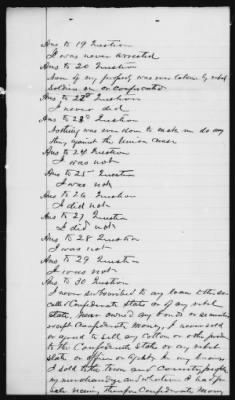 Ans to 19 Question
I was never arrested
Ans to 20 Question
None of my property was ever taken by rebel
Soldiers or confiscated
Ans to 22d Question
I never did
Ans to 23d Question
Nothing was ever done to make me do any
thing against the Union cause
Ans to 24 Question
I was not
Ans to 25 Question
I was not
Ans to 26 Question
I did not
Ans to 27 Question
I did not
Ans to 28 Question
I was not
Ans to 29 Question
I was not
Ans to 30 Question
I never subscribed to any loan to the so
called Confederate States or of any rebel
State, Never owned any bonds or
except Confederate Money, I never sold
or agreed to sell any cotton or other produce
to the Confederate State or any rebel
State or officer or agent
I sold to the town and Country people
my merchandize and
sale receiving therefor Confederate Money